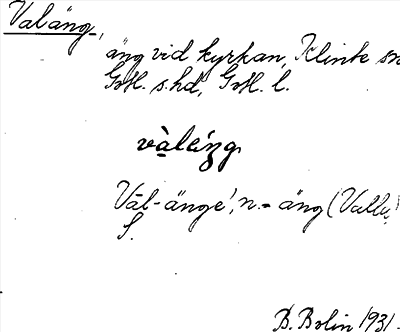 Valäng,
äng vid kyrkan, Klinte sn
Gotl. s.hd, Gotl. l.
väläŋg
Väl-änge, n. = äng (Valle,
S.
B. Bolin 1931.